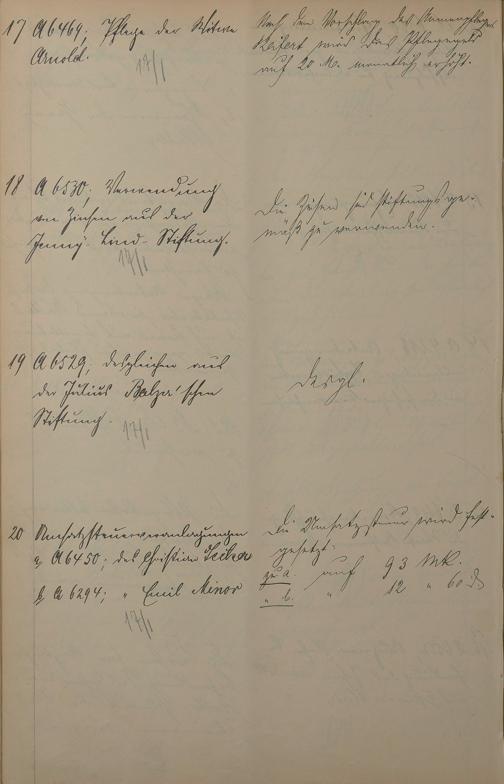 17 A 6469; Pflege der Witwe
Arnold.
17/1
Nach dem Vorschlag des Armenpflegers
Seifert wird das Pflegegeld
auf 20 M. monatlich erhöht.
18 A 6530; Verwendung
von Zinsen aus der
Jenny-Lind-Stiftung.
17/1
Die Zinsen sind stiftungsge-
mäß zu verwenden.
19 A 6529; desgleichen aus
der Julius Balza'schen
Stiftung.
17/1
desgl.
20 Umsatzsteuerveranlagungen
a, A 6450; des Christian
b, A 6294; " Emil Minor
17/1
Die Umsatzsteuer wird fest-
gesetzt:
zu a. auf 93 Mk.
" b. " 12 " 60 d